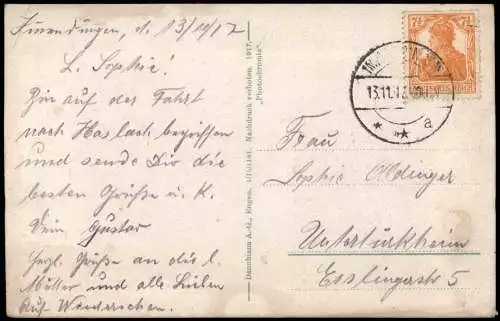 d. 13/11/17
L. Sophie!
Bin auf der Fahrt
nach Haslach begriffen
und sende Dir die
besten Grüße u. K.
Dein Gustav
Herzl. Grüße an die l.
Mutter und alle Lieben
Auf Wiedersehen.
Nachdruck verboten. 1917.
"Photochromie".
7½
13.11.17
a
Frau
Sophie Oldinger
Untertürkheim
Esslingerstr 5